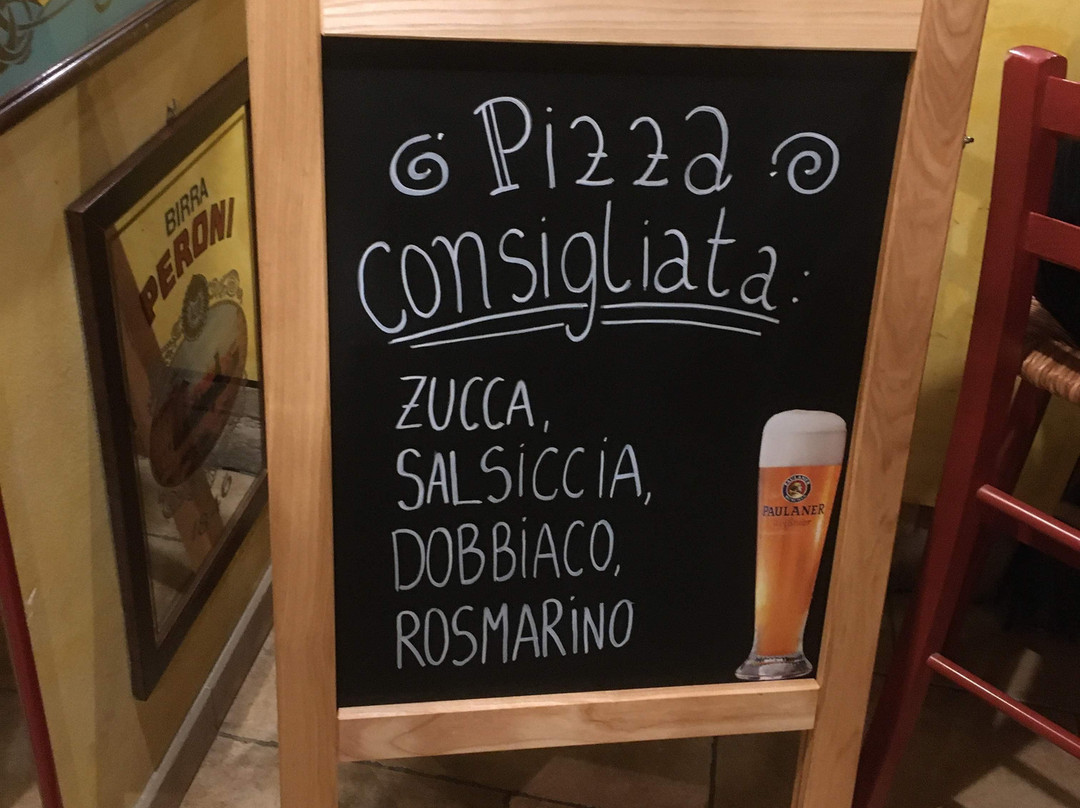 Pizza
consigliata:
ZUCCA,
SALSICCIA,
DOBBIACO,
ROSMARINO
PAULANER
BIRRA
PERONI